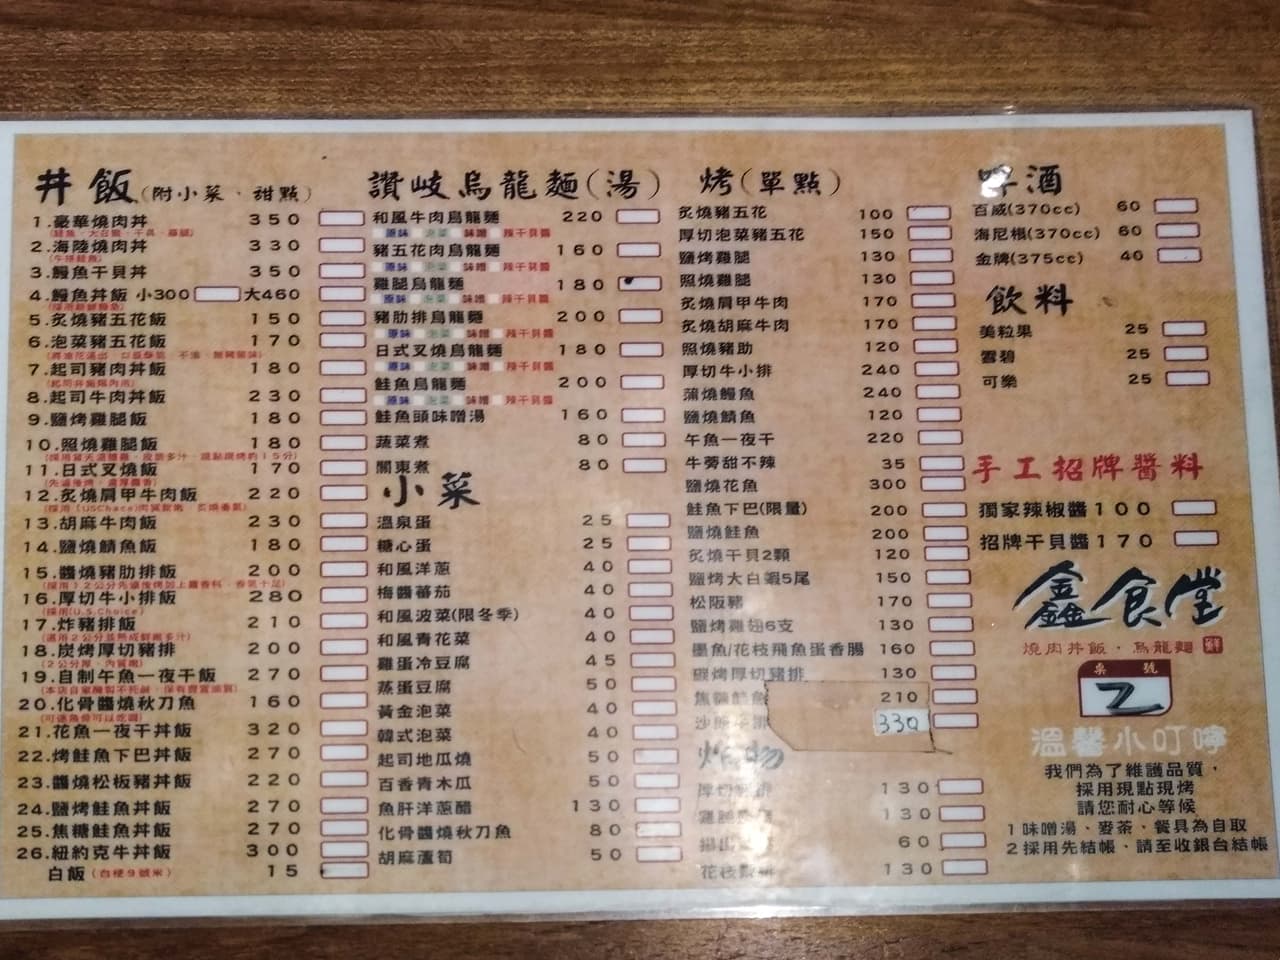 丼飯(附小菜、甜點)
1.豪華燒肉丼 350
2.海陸燒肉丼 330
(牛排鮭魚)
3.鰻魚干貝丼 350
4.鰻魚丼飯 小300 大460
5.炙燒豬五花飯 150
6.泡菜豬五花飯 170
7.起司豬肉丼飯 180
8.起司牛肉丼飯 230
9.鹽烤雞腿飯 180
10.照燒雞腿飯 180
11.日式叉燒飯 170
12.炙燒肩甲牛肉飯 220
13.胡麻牛肉飯 230
14.鹽燒鯖魚飯 180
15.醬燒豬肋排飯 200
16.厚切牛小排飯 280
(採用U.S.Choice)
17.炸豬排飯 210
(選用2公分並熟成鮮嫩多汁)
18.炭烤厚切豬排 200
(2公分厚、肉質嫩)
19.自制午魚一夜干飯 270
20.化骨醬燒秋刀魚 160
(可連魚骨可以吃喔)
21.花魚一夜干丼飯 320
22.烤鮭魚下巴丼飯 270
23.醬燒松板豬丼飯 220
24.鹽烤鮭魚丼飯 270
25.焦糖鮭魚丼飯 270
26.紐約克牛丼飯 300
白飯(台梗9號米) 15
讚岐烏龍麵(湯)
和風牛肉烏龍麵 220
原味 泡菜 味噌 辣干貝醬
豬五花肉烏龍麵 160
原味 泡菜 味噌 辣干貝醬
雞腿烏龍麵 180
原味 泡菜 味噌 辣干貝醬
豬肋排烏龍麵 200
原味 泡菜 味噌 辣干貝醬
日式叉燒烏龍麵 180
原味 泡菜 味噌 辣干貝醬
鮭魚烏龍麵 200
原味 泡菜 味噌 辣干貝醬
鮭魚頭味噌湯 160
蔬菜煮 80
關東煮 80
小菜
溫泉蛋 25
糖心蛋 25
和風洋蔥 40
梅醬蕃茄 40
和風波菜(限冬季) 40
和風青花菜 40
雞蛋冷豆腐 45
蒸蛋豆腐 50
黃金泡菜 40
韓式泡菜 40
起司地瓜燒 50
百香青木瓜 50
魚肝洋蔥醋 130
化骨醬燒秋刀魚 80
胡麻蘆筍 50
烤(單點)
炙燒豬五花 100
厚切泡菜豬五花 150
鹽烤雞腿 130
照燒雞腿 130
炙燒肩甲牛肉 170
炙燒胡麻牛肉 170
照燒豬助 120
厚切牛小排 240
蒲燒鰻魚 240
鹽燒鯖魚 120
午魚一夜干 220
牛蒡甜不辣 35
鹽燒花魚 300
鮭魚下巴(限量) 200
鹽燒鮭魚 200
炙燒干貝2顆 120
鹽烤大白蝦5尾 150
松阪豬 170
鹽烤雞翅6支 130
墨魚/花枝飛魚蛋香腸 160
碳烤厚切豬排 130
210
330
炸物
130
130
60
130
啤酒
百威(370cc) 60
海尼根(370cc) 60
金牌(375cc) 40
飲料
美粒果 25
雪碧 25
可樂 25
手工招牌醬料
獨家辣椒醬100
招牌干貝醬170
鑫食堂
燒肉丼飯·烏龍麵
桌號
2
溫馨小叮嚀
我們為了維護品質，
採用現點現烤
請您耐心等候
1味噌湯、麥茶、餐具為自取
2採用先結帳、請至收銀台結帳